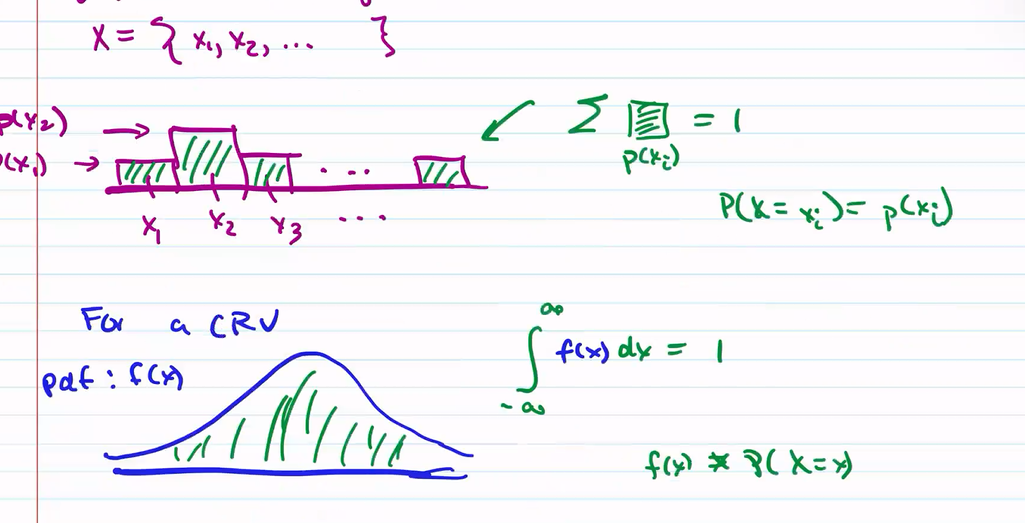 X = { x₁, x₂, ... }
p(x₂)
p(x₁)
x₁ x₂ x₃ ...
Σ = 1
p(xᵢ)
P(X = xᵢ) = p(xᵢ)
For a CRV
pdf : f(x)
∫ f(x) dx = 1
∞
-∞
f(x) ≠ P(X=x)